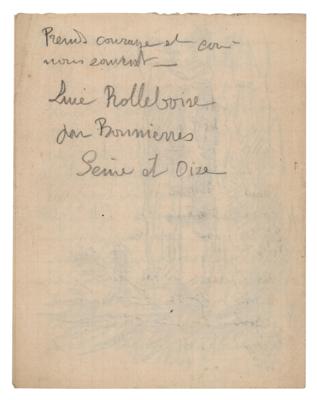 Prends courage et écri-
nous souvent —
Rolleboise
par Bonnières
Seine et Oise